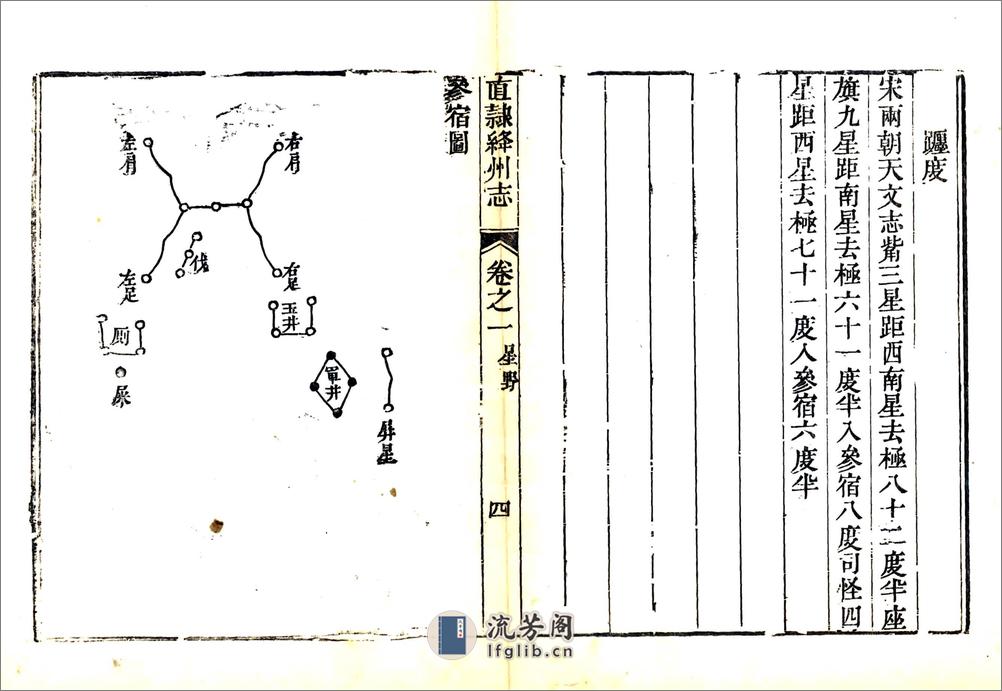 躔度
宋兩朝天文志觜三星距西南星去極八十二度半座
旗九星距南星去極六十一度半入參宿八度司怪四
星距西星去極七十一度入參宿六度半
直隸絳州志
卷之一
星野
四
參宿圖
右肩
左肩
伐
右足
左足
玉井
厠
屎
軍井
屏星
流芳阁
lfglib.cn